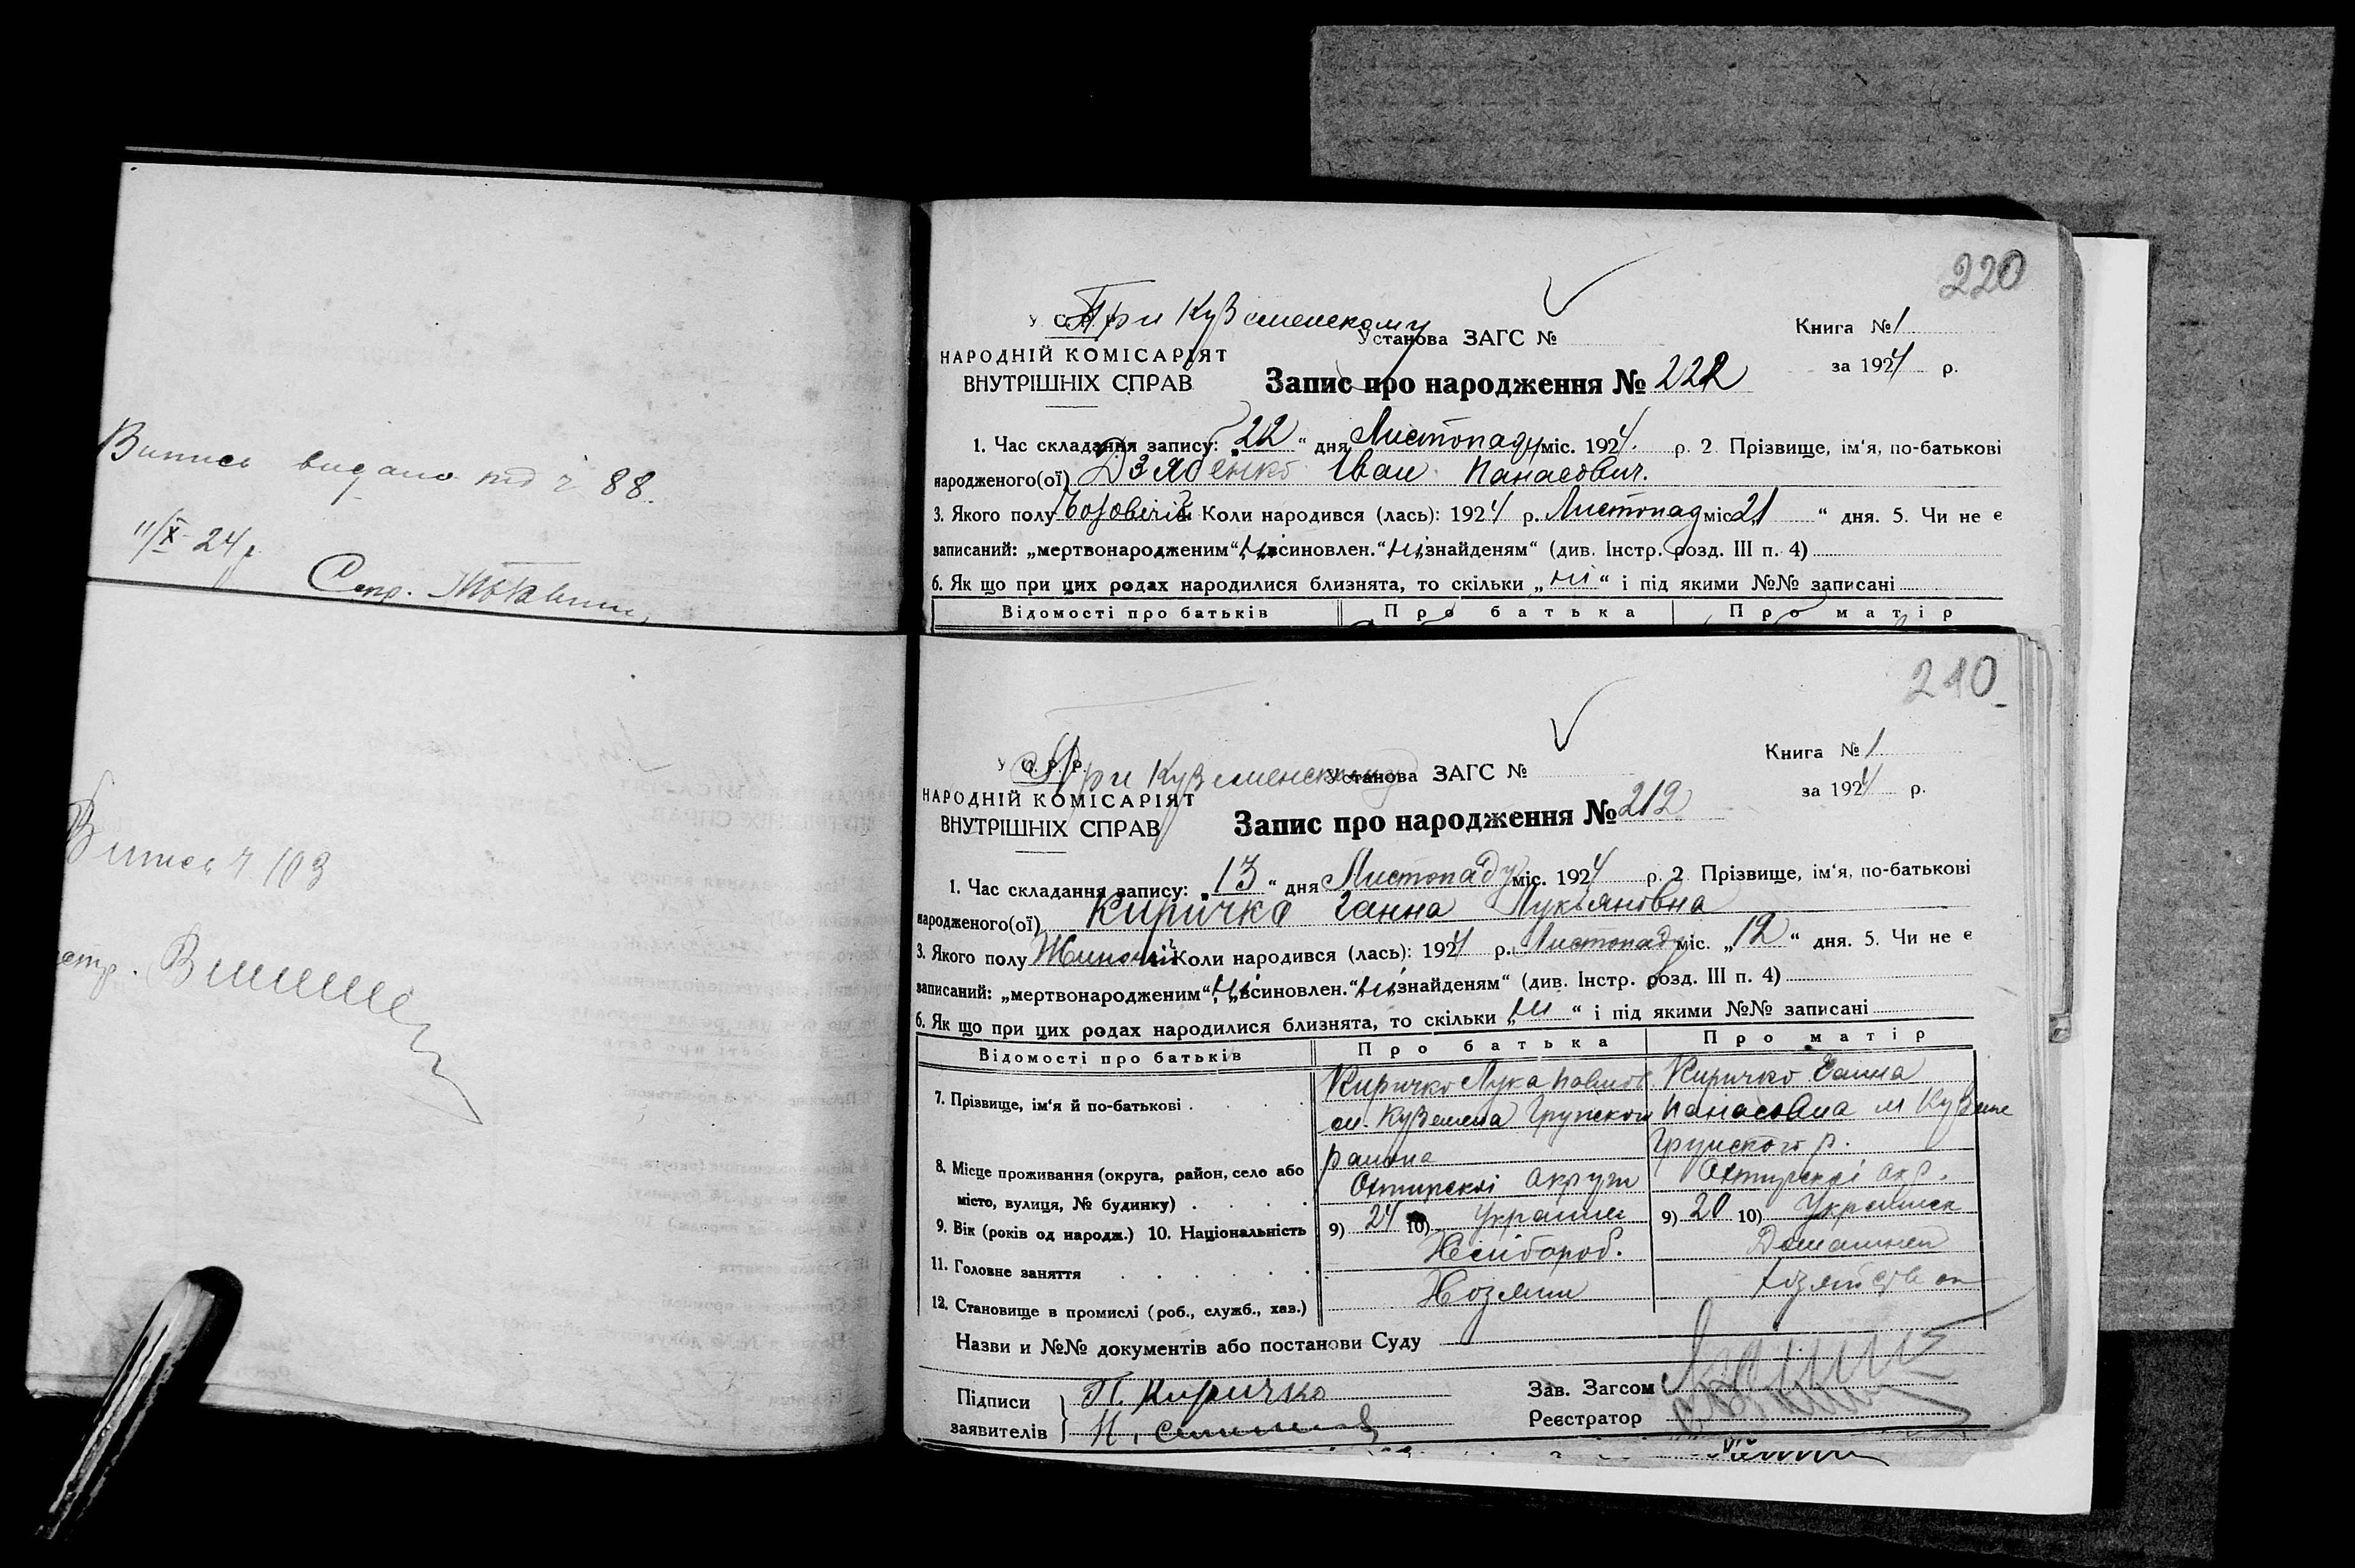 Випись видано під ч 88.
11/X 24 р.
Секр.
220
При Куземенскому
У С. Р. Р.
Установа ЗАГС №
Книга № 1
НАРОДНІЙ КОМІСАРІЯТ
ВНУТРІШНІХ СПРАВ
за 1924 р.
Запис про народження № 222
1. Час складання запису: „22“ дня Листопаду міс. 1924 р. 2 Прізвище, ім‘я, по-батькові
народженого(ої) Дзябенко Іван Панасович.
3. Якого полу Чоловічій Коли народився (лась): 1924 р. Листопад міс. „21“ дня. 5. Чи не є
записаний: „мертвонародженим“ ні „всиновлен.“ ні „знайденям“ (див. Інстр. розд. III п. 4)
6. Як що при цих родах народилися близнята, то скільки „ні“ і під якими №№ записані
Відомості про батьків Про батька Про матір
Випись ч 103
210
При Куземенскому
У С. Р. Р.
Установа ЗАГС №
Книга № 1
НАРОДНІЙ КОМІСАРІЯТ
ВНУТРІШНІХ СПРАВ
за 1924 р.
Запис про народження № 212
1. Час складання запису: „13“ дня Листопаду міс. 1924 р. 2 Прізвище, ім‘я, по-батькові
народженого(ої) Киричко Ганна Лукьяновна
3. Якого полу Жиночій Коли народився (лась): 1924 р. Листопад міс. „12“ дня. 5. Чи не є
записаний: „мертвонародженим“ ні „всиновлен.“ ні „знайденям“ (див. Інстр. розд. III п. 4)
6. Як що при цих родах народилися близнята, то скільки „ні“ і під якими №№ записані
Відомості про батьків Про батька Про матір
7. Прізвище, ім‘я й по-батькові . Киричко Лука Павлов. Киричко Ганна
м. Куземена Грунского Панасовна м Куземе
района Грунского р.
8. Місце проживання (округа, район, село або
місто, вулиця, № будинку) . Охтирскоі Округи Охтирскоі окр.
9. Вік (років од народж.) 10. Національність 9) 24 10) Украинц 9) 20 10) Украинск
11. Головне заняття Хлібороб. Домашнєм
12. Становище в промислі (роб., служб., хаз.) Хозяин хозяйством
Назви и №№ документів або постанови Суду
Підписи
заявителів
П. Киричко
Зав. Загсом
Реєстратор